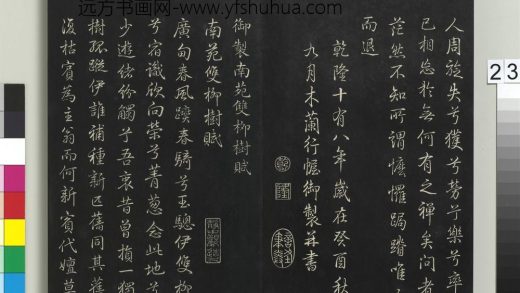 远方书画网-www.yfshuhua.com
人周旋失兮獲兮勞兮樂兮率
已相忘於無何有之禪矣問者
茫然不知所謂慚懼跼蹐唯
而退
乾隆十有八年歲在癸酉秋
九月木蘭行幄御製并書
御製南苑雙柳樹賦
南苑雙柳樹賦
廣甸春風躞春驕兮玉驄伊雙柳
兮容識欣向榮兮菁蔥念此地
少遊絃紛觸兮吾衷昔曾
樹孤蹤伊誰補種新
復枯賓為主翁而何新賓代嬗
23